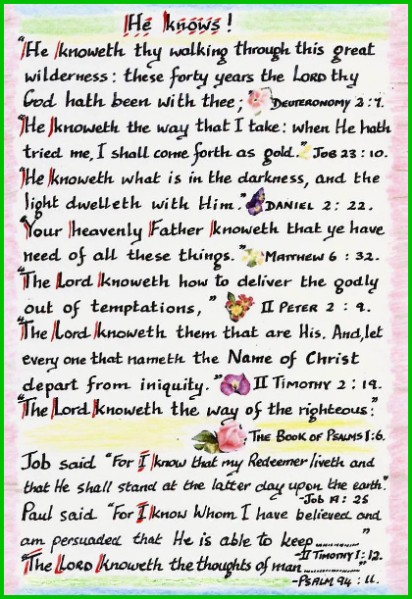 He knows!
"He knoweth thy walking through this great
wilderness: these forty years the LORD thy
God hath been with thee; DEUTERONOMY 2:7.
"He knoweth the way that I take: when He hath
tried me, I shall come forth as gold." JOB 23:10.
"He knoweth what is in the darkness, and the
light dwelleth with Him." DANIEL 2:22.
"Your heavenly Father knoweth that ye have
need of all these things." MATTHEW 6:32.
"The Lord knoweth how to deliver the godly
out of temptations," II PETER 2:9.
"The Lord knoweth them that are His. And, let
every one that nameth the Name of Christ
depart from iniquity." II TIMOTHY 2:19.
"The Lord knoweth the way of the righteous:"
THE BOOK OF PSALMS 1:6.
Job said "For I know that my Redeemer liveth and
that He shall stand at the latter day upon the earth."
-Job 19:25
Paul said "For I know Whom I have believed and
am persuaded that He is able to keep..........
-II TIMOTHY 1:12.
"The LORD knoweth the thoughts of man..........
-PSALM 94:11.